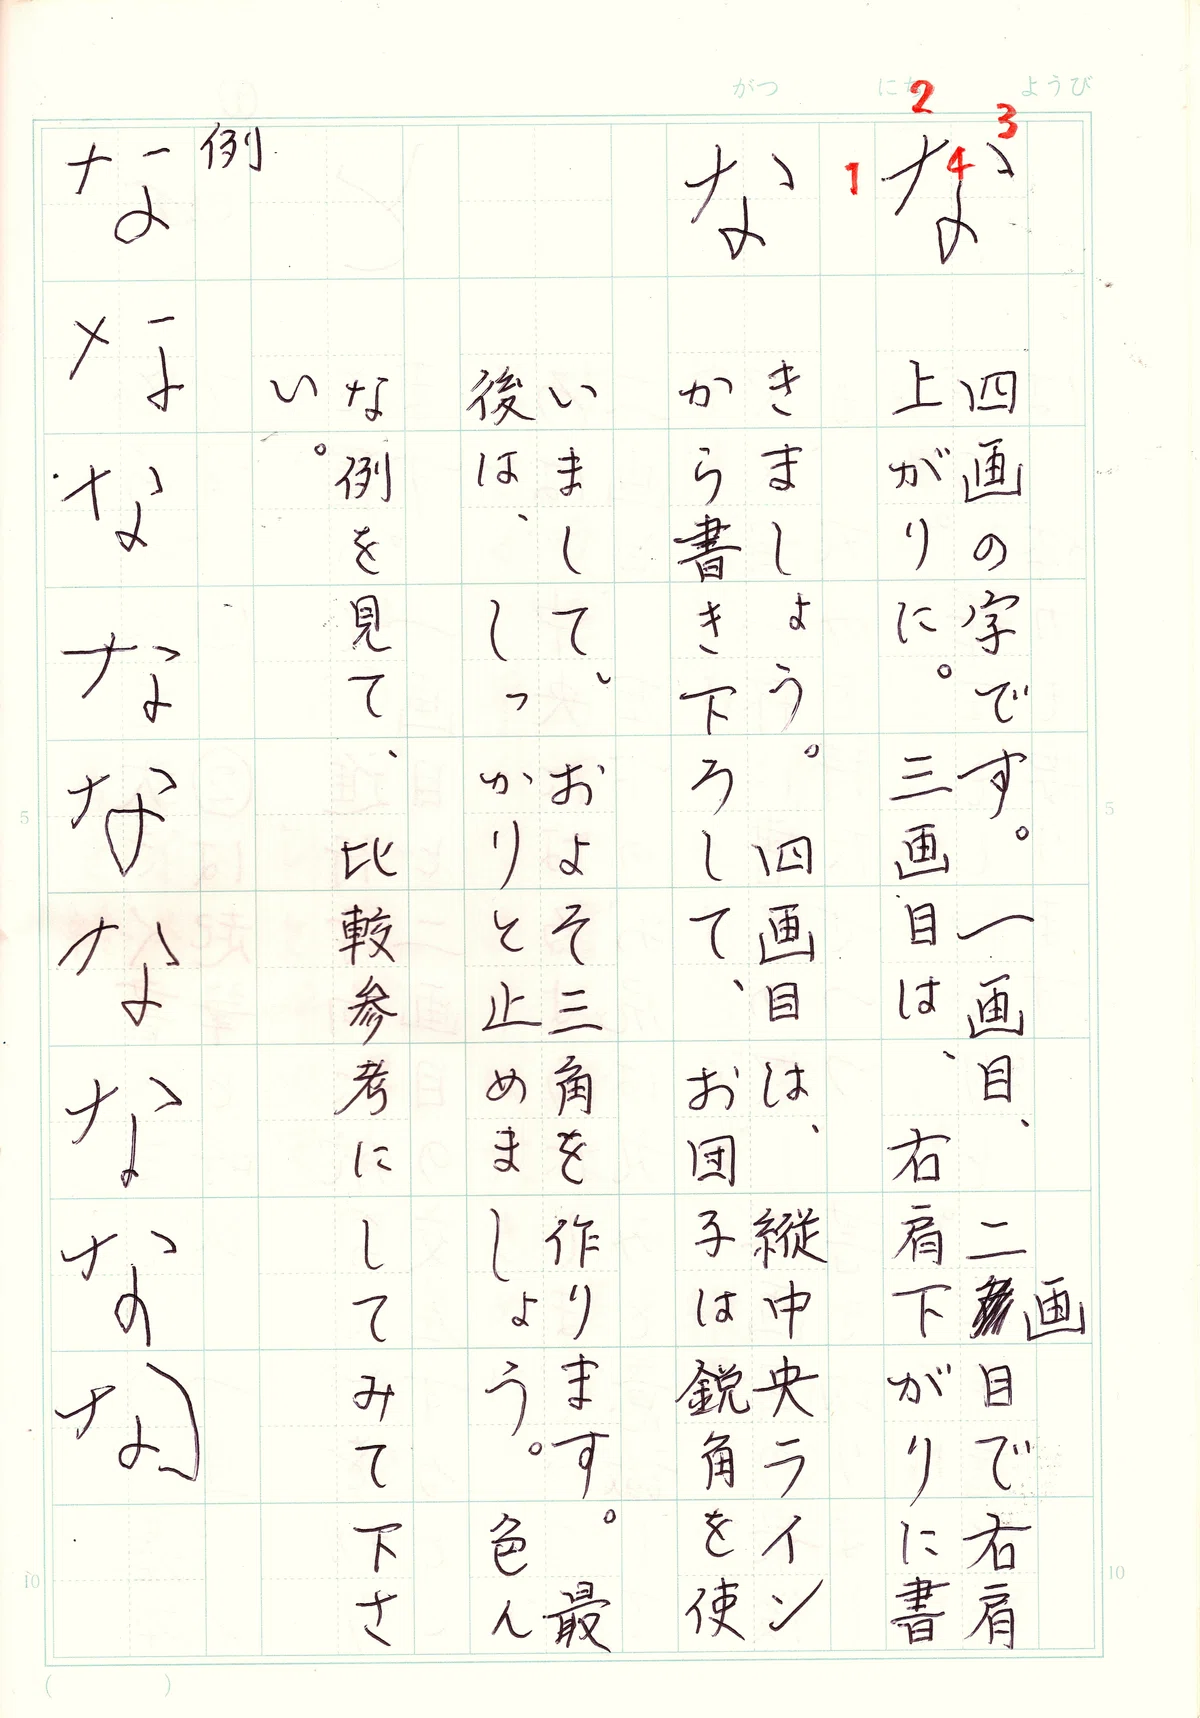 がつ　にち　ようび
2
3
1
4
な
四画の字です。一画目、二画目で右肩
上がりに。三画目は、右肩下がりに書
な
きましょう。四画目は、縦中央ライン
から書き下ろして、お団子は鋭角を使
いまして、およそ三角を作ります。最
後は、しっかりと止めましょう。色ん
な例を見て、比較参考にしてみて下さ
い。
例
な
な
な
な
な
な
な
な
な
5
5
10
10
(　　)